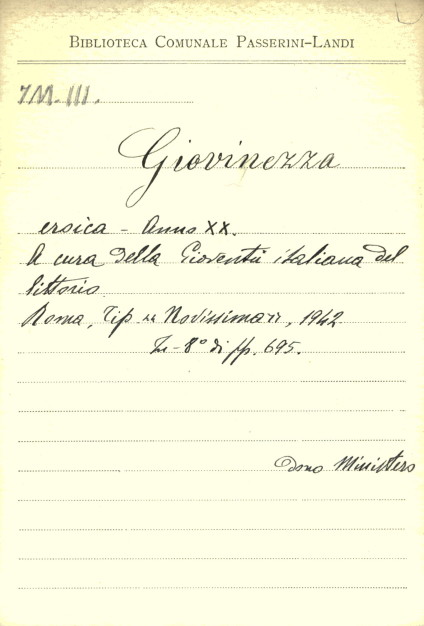 BIBLIOTECA COMUNALE PASSERINI-LANDI
7M. III.
Giovinezza
eroica - Anno XX.
A cura della Gioventù italiana del
littorio
Roma, Tip "Novissima", 1942
In-8° di pp. 695.
dono Ministero